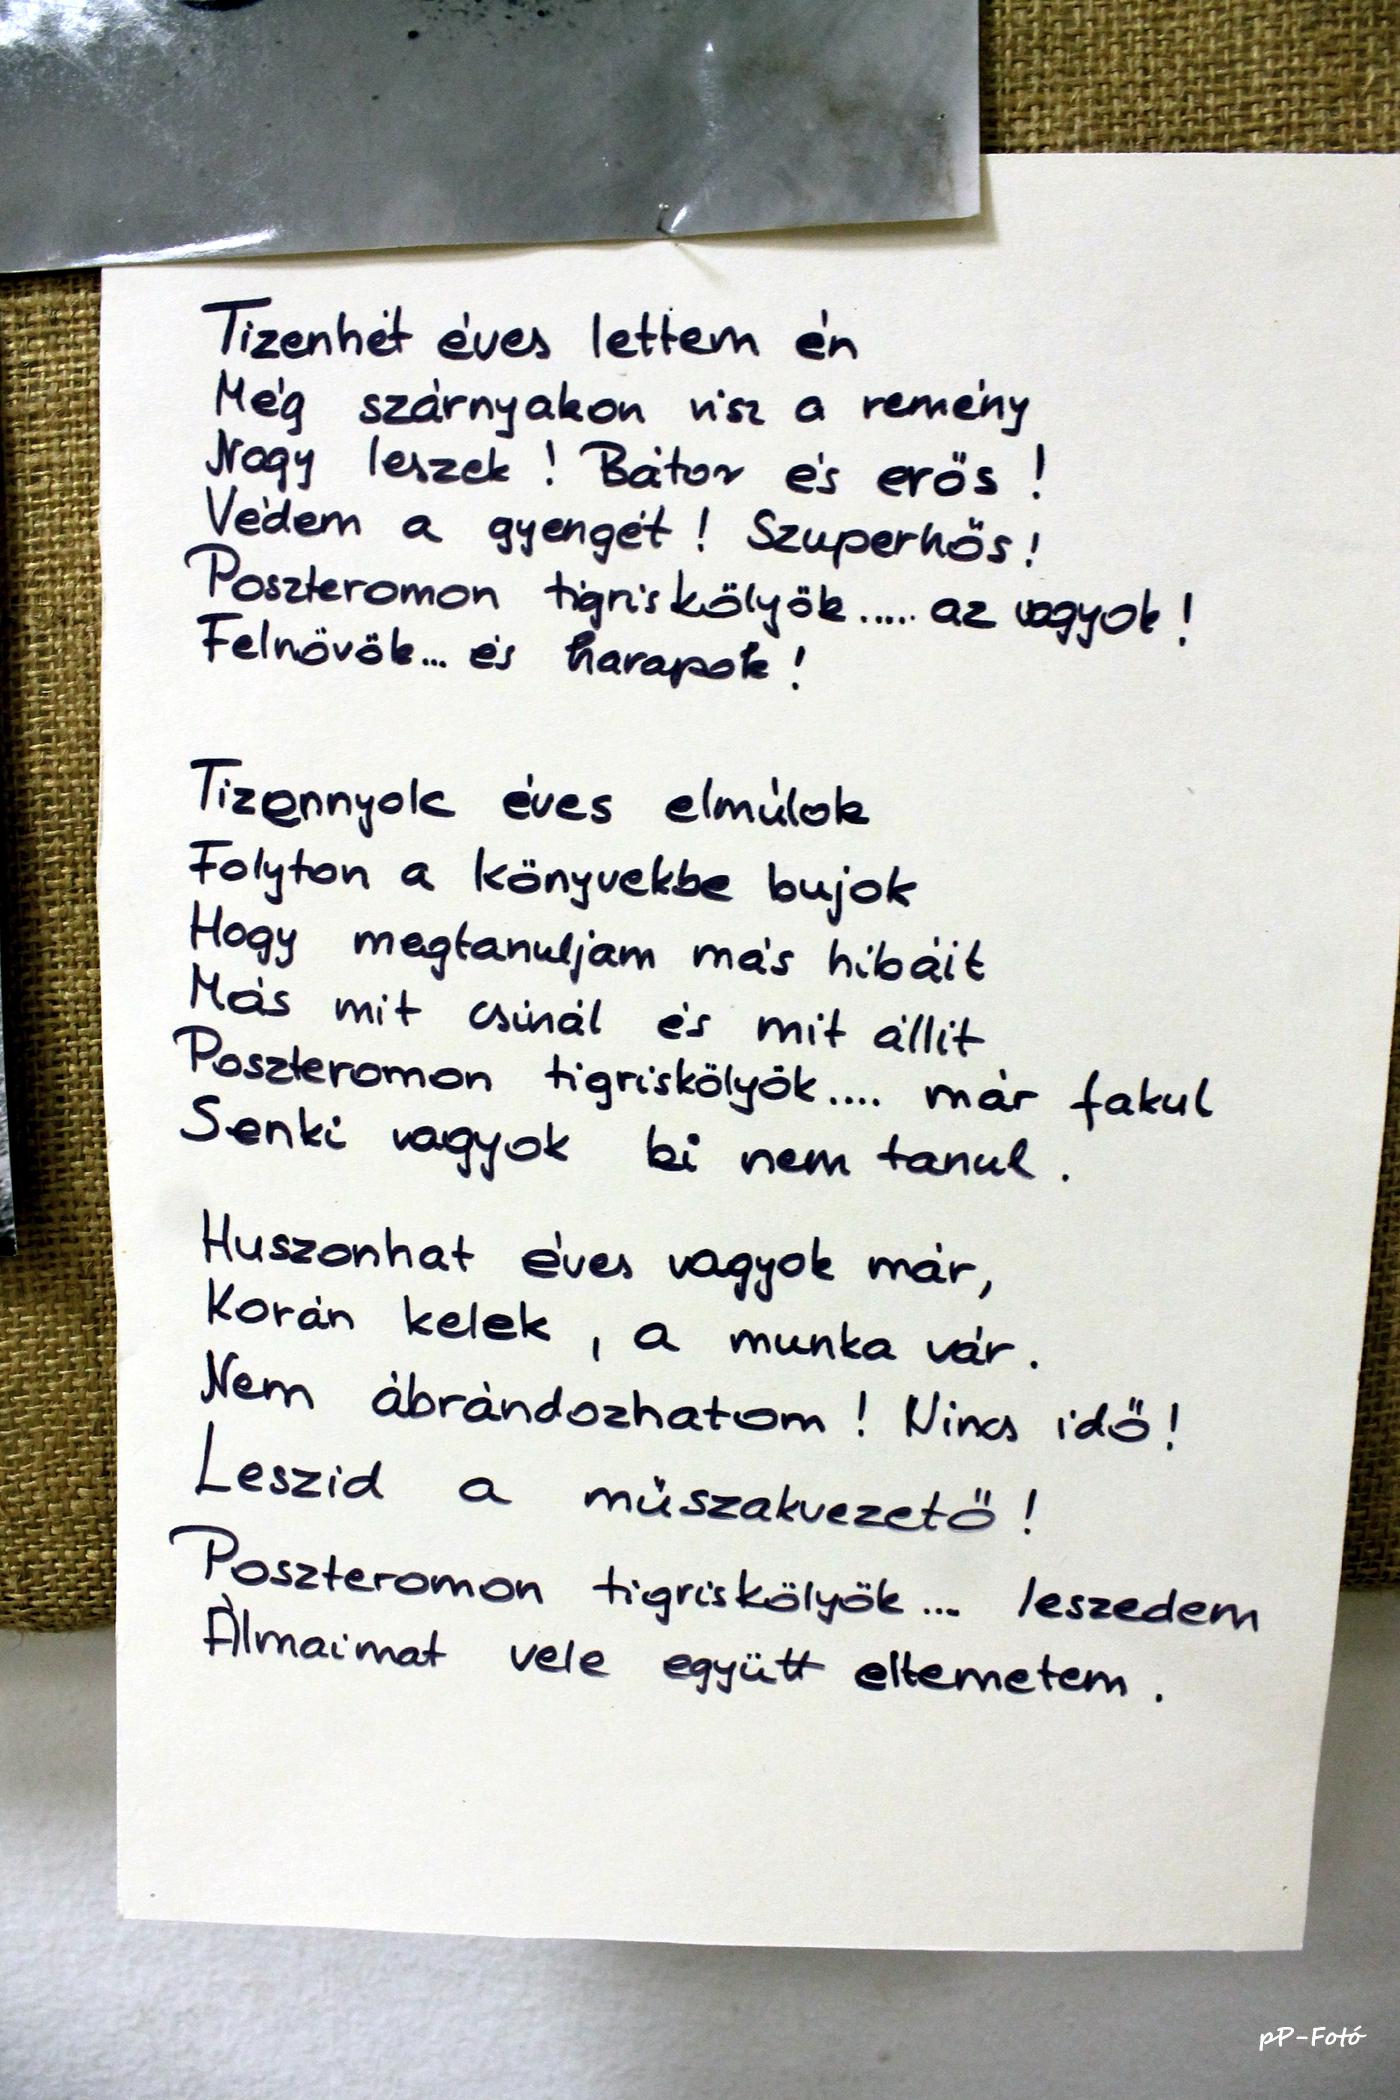 Tizenhét éves lettem én
Még szárnyakon visz a remény
Nagy leszek ! Bátor és erős !
Védem a gyengét ! Szuperhős !
Poszteromon tigriskölyök..... az vagyok !
Felnövök... és harapok !
Tizennyolc éves elmúlok
Folyton a könyvekbe bujok
Hogy megtanuljam más hibáit
Más mit csinál és mit állit
Poszteromon tigriskölyök.... már fakul
Senki vagyok ki nem tanul .
Huszonhat éves vagyok már,
Korán kelek , a munka vár .
Nem ábrándozhatom ! Nincs idő !
Leszid a műszakvezető !
Poszteromon tigriskölyök... leszedem
Álmaimat vele együtt eltemetem .
pP-Fotó